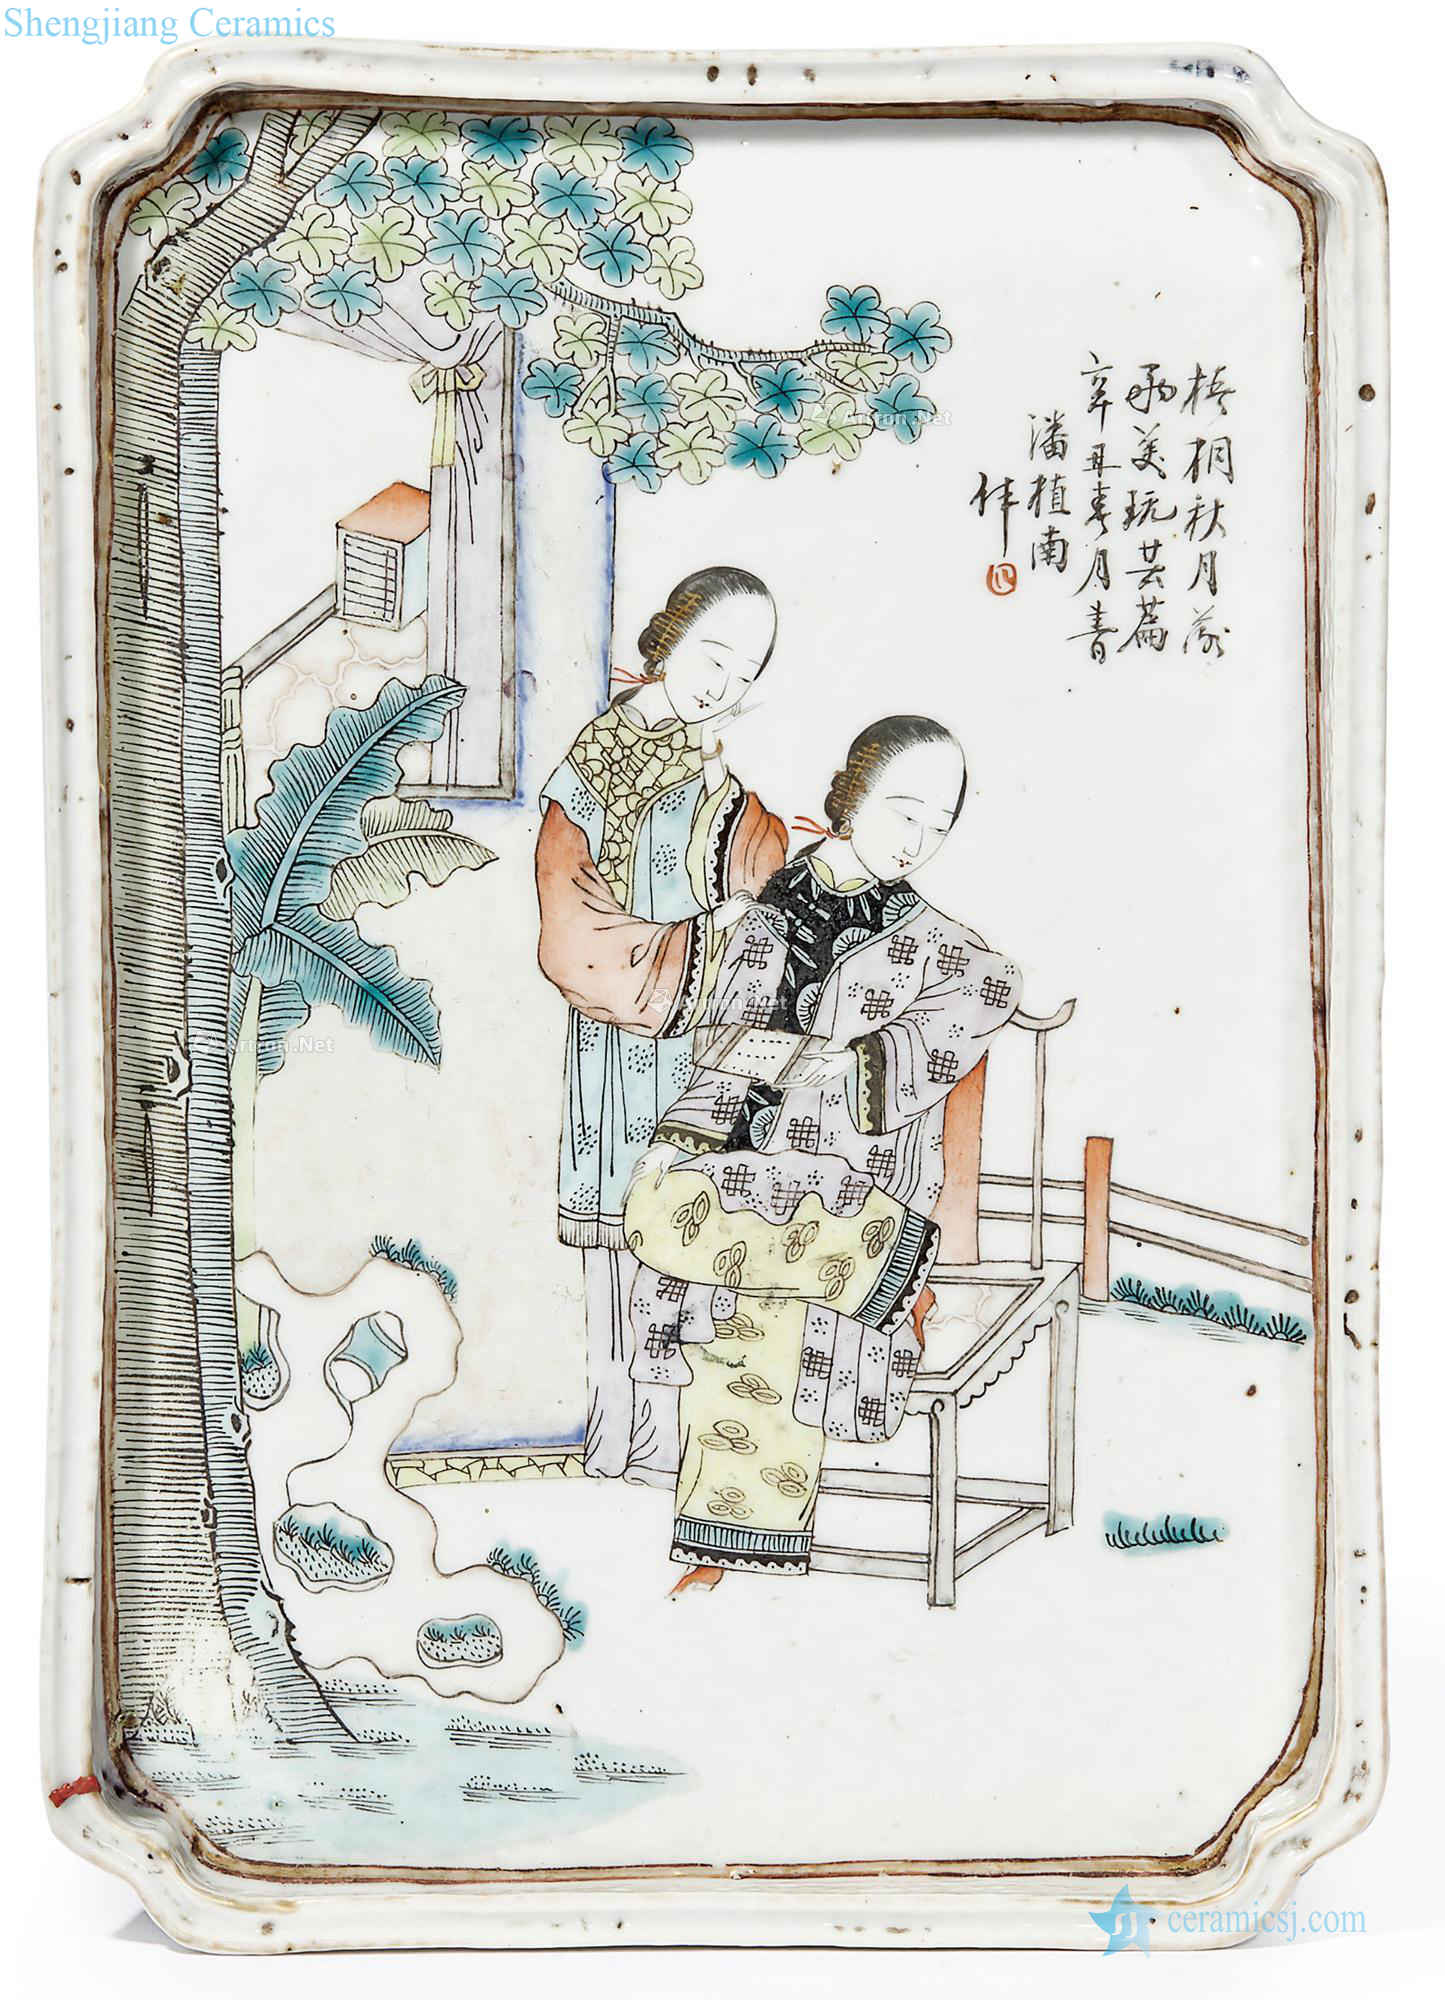 Shengjiang Ceramics
梧桐秋月落
兩美玩芸蕳
辛丑春月書
潘植南
作
Artron.Net
Artron.Net
Artron.Net
ceramicsj.com